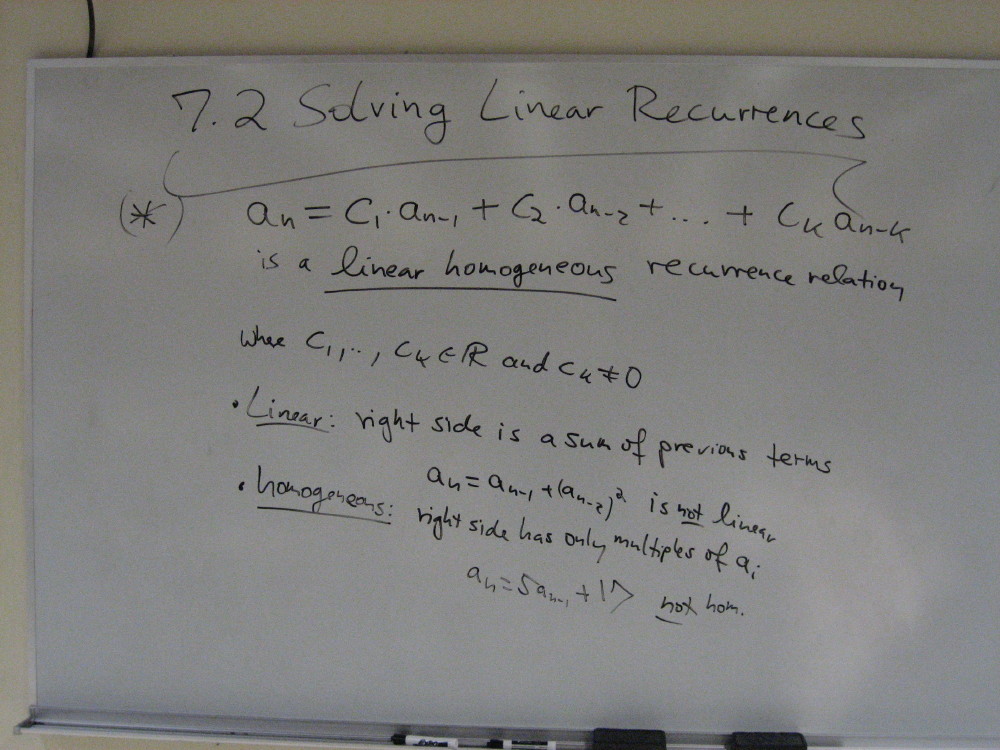 7.2 Solving Linear Recurrences
(*) aₙ = C₁·aₙ₋₁ + C₂·aₙ₋₂ + ... + Cₖ aₙ₋ₖ
is a linear homogeneous recurrence relation
where C₁,.., Cₖ ∈ ℝ and cₖ ≠ 0
• Linear: right side is a sum of previous terms
aₙ = aₙ₋₁ + (aₙ₋₂)² is not linear
• homogeneous: right side has only multiples of aᵢ
aₙ = 5aₙ₋₁ + 17 not hom.